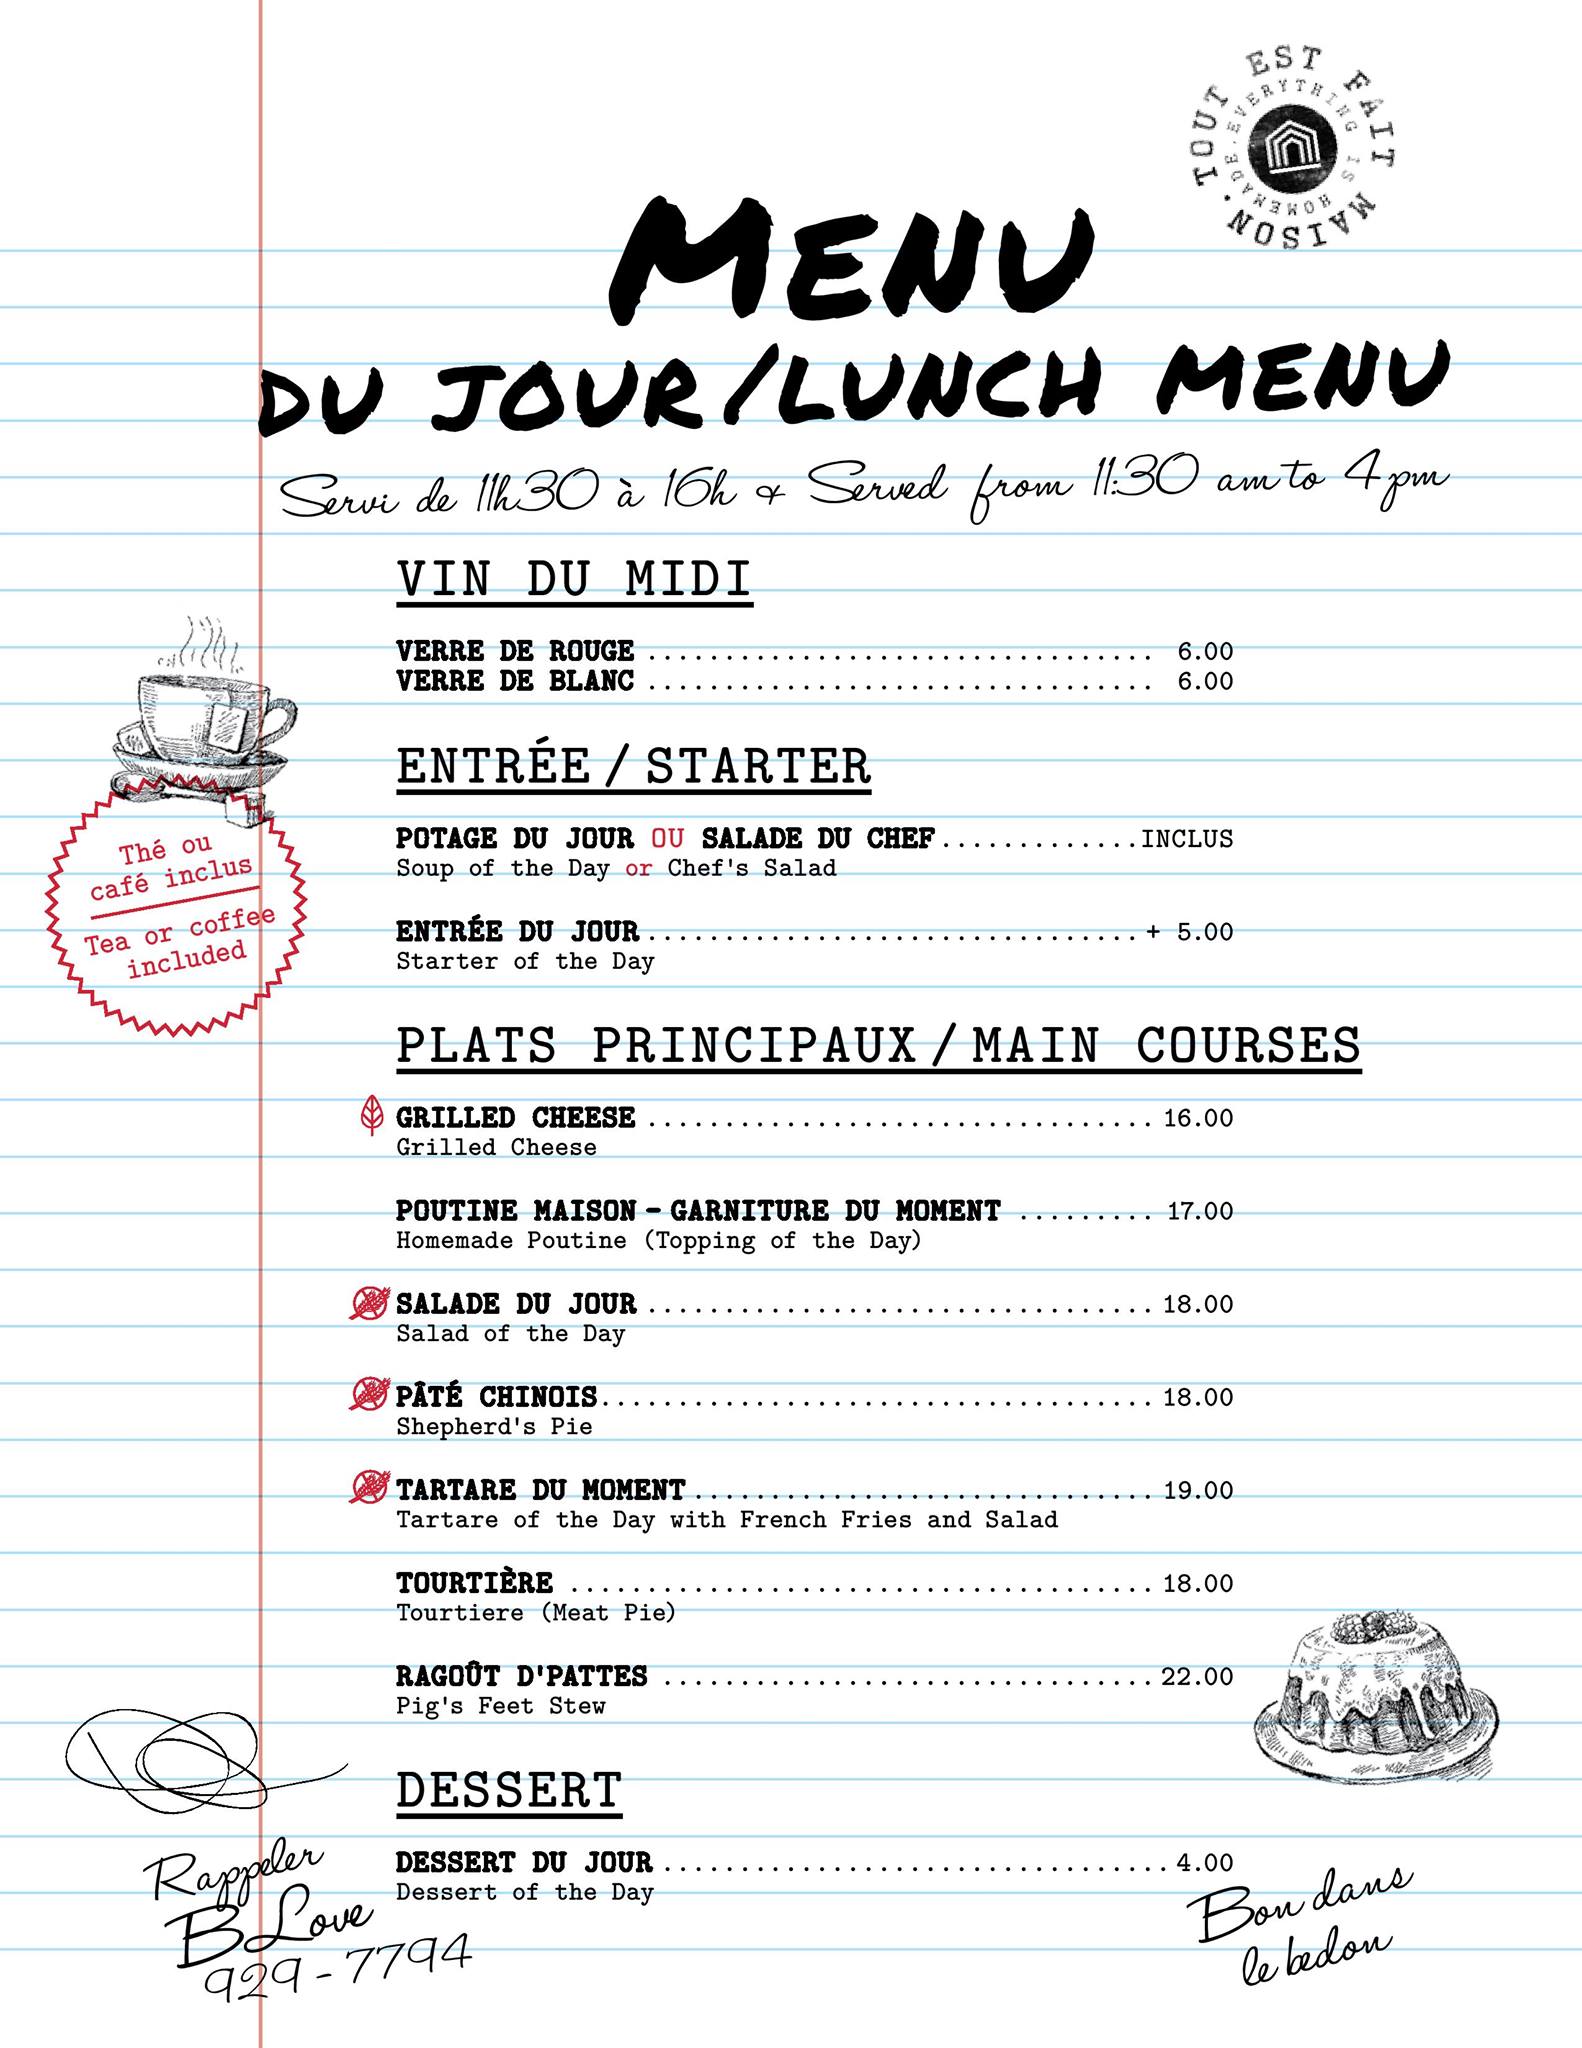 TOUT EST FAIT MAISON.
EVERYTHING IS HOMEMADE.
MENU
DU JOUR/LUNCH MENU
Servi de 11h30 à 16h & Served from 11:30 am to 4pm
VIN DU MIDI
VERRE DE ROUGE .................................. 6.00
VERRE DE BLANC .................................. 6.00
ENTRÉE / STARTER
POTAGE DU JOUR OU SALADE DU CHEF.............INCLUS
Soup of the Day or Chef's Salad
ENTRÉE DU JOUR.................................+ 5.00
Starter of the Day
Thé ou
café inclus
Tea or coffee
included
PLATS PRINCIPAUX / MAIN COURSES
GRILLED CHEESE .................................. 16.00
Grilled Cheese
POUTINE MAISON - GARNITURE DU MOMENT ......... 17.00
Homemade Poutine (Topping of the Day)
SALADE DU JOUR .................................. 18.00
Salad of the Day
PÂTÉ CHINOIS..................................... 18.00
Shepherd's Pie
TARTARE DU MOMENT ............................... 19.00
Tartare of the Day with French Fries and Salad
TOURTIÈRE ....................................... 18.00
Tourtiere (Meat Pie)
RAGOÛT D'PATTES ................................. 22.00
Pig's Feet Stew
DESSERT
DESSERT DU JOUR .................................. 4.00
Dessert of the Day
Rappeler
B Love
929-7794
Bon dans
le bedon